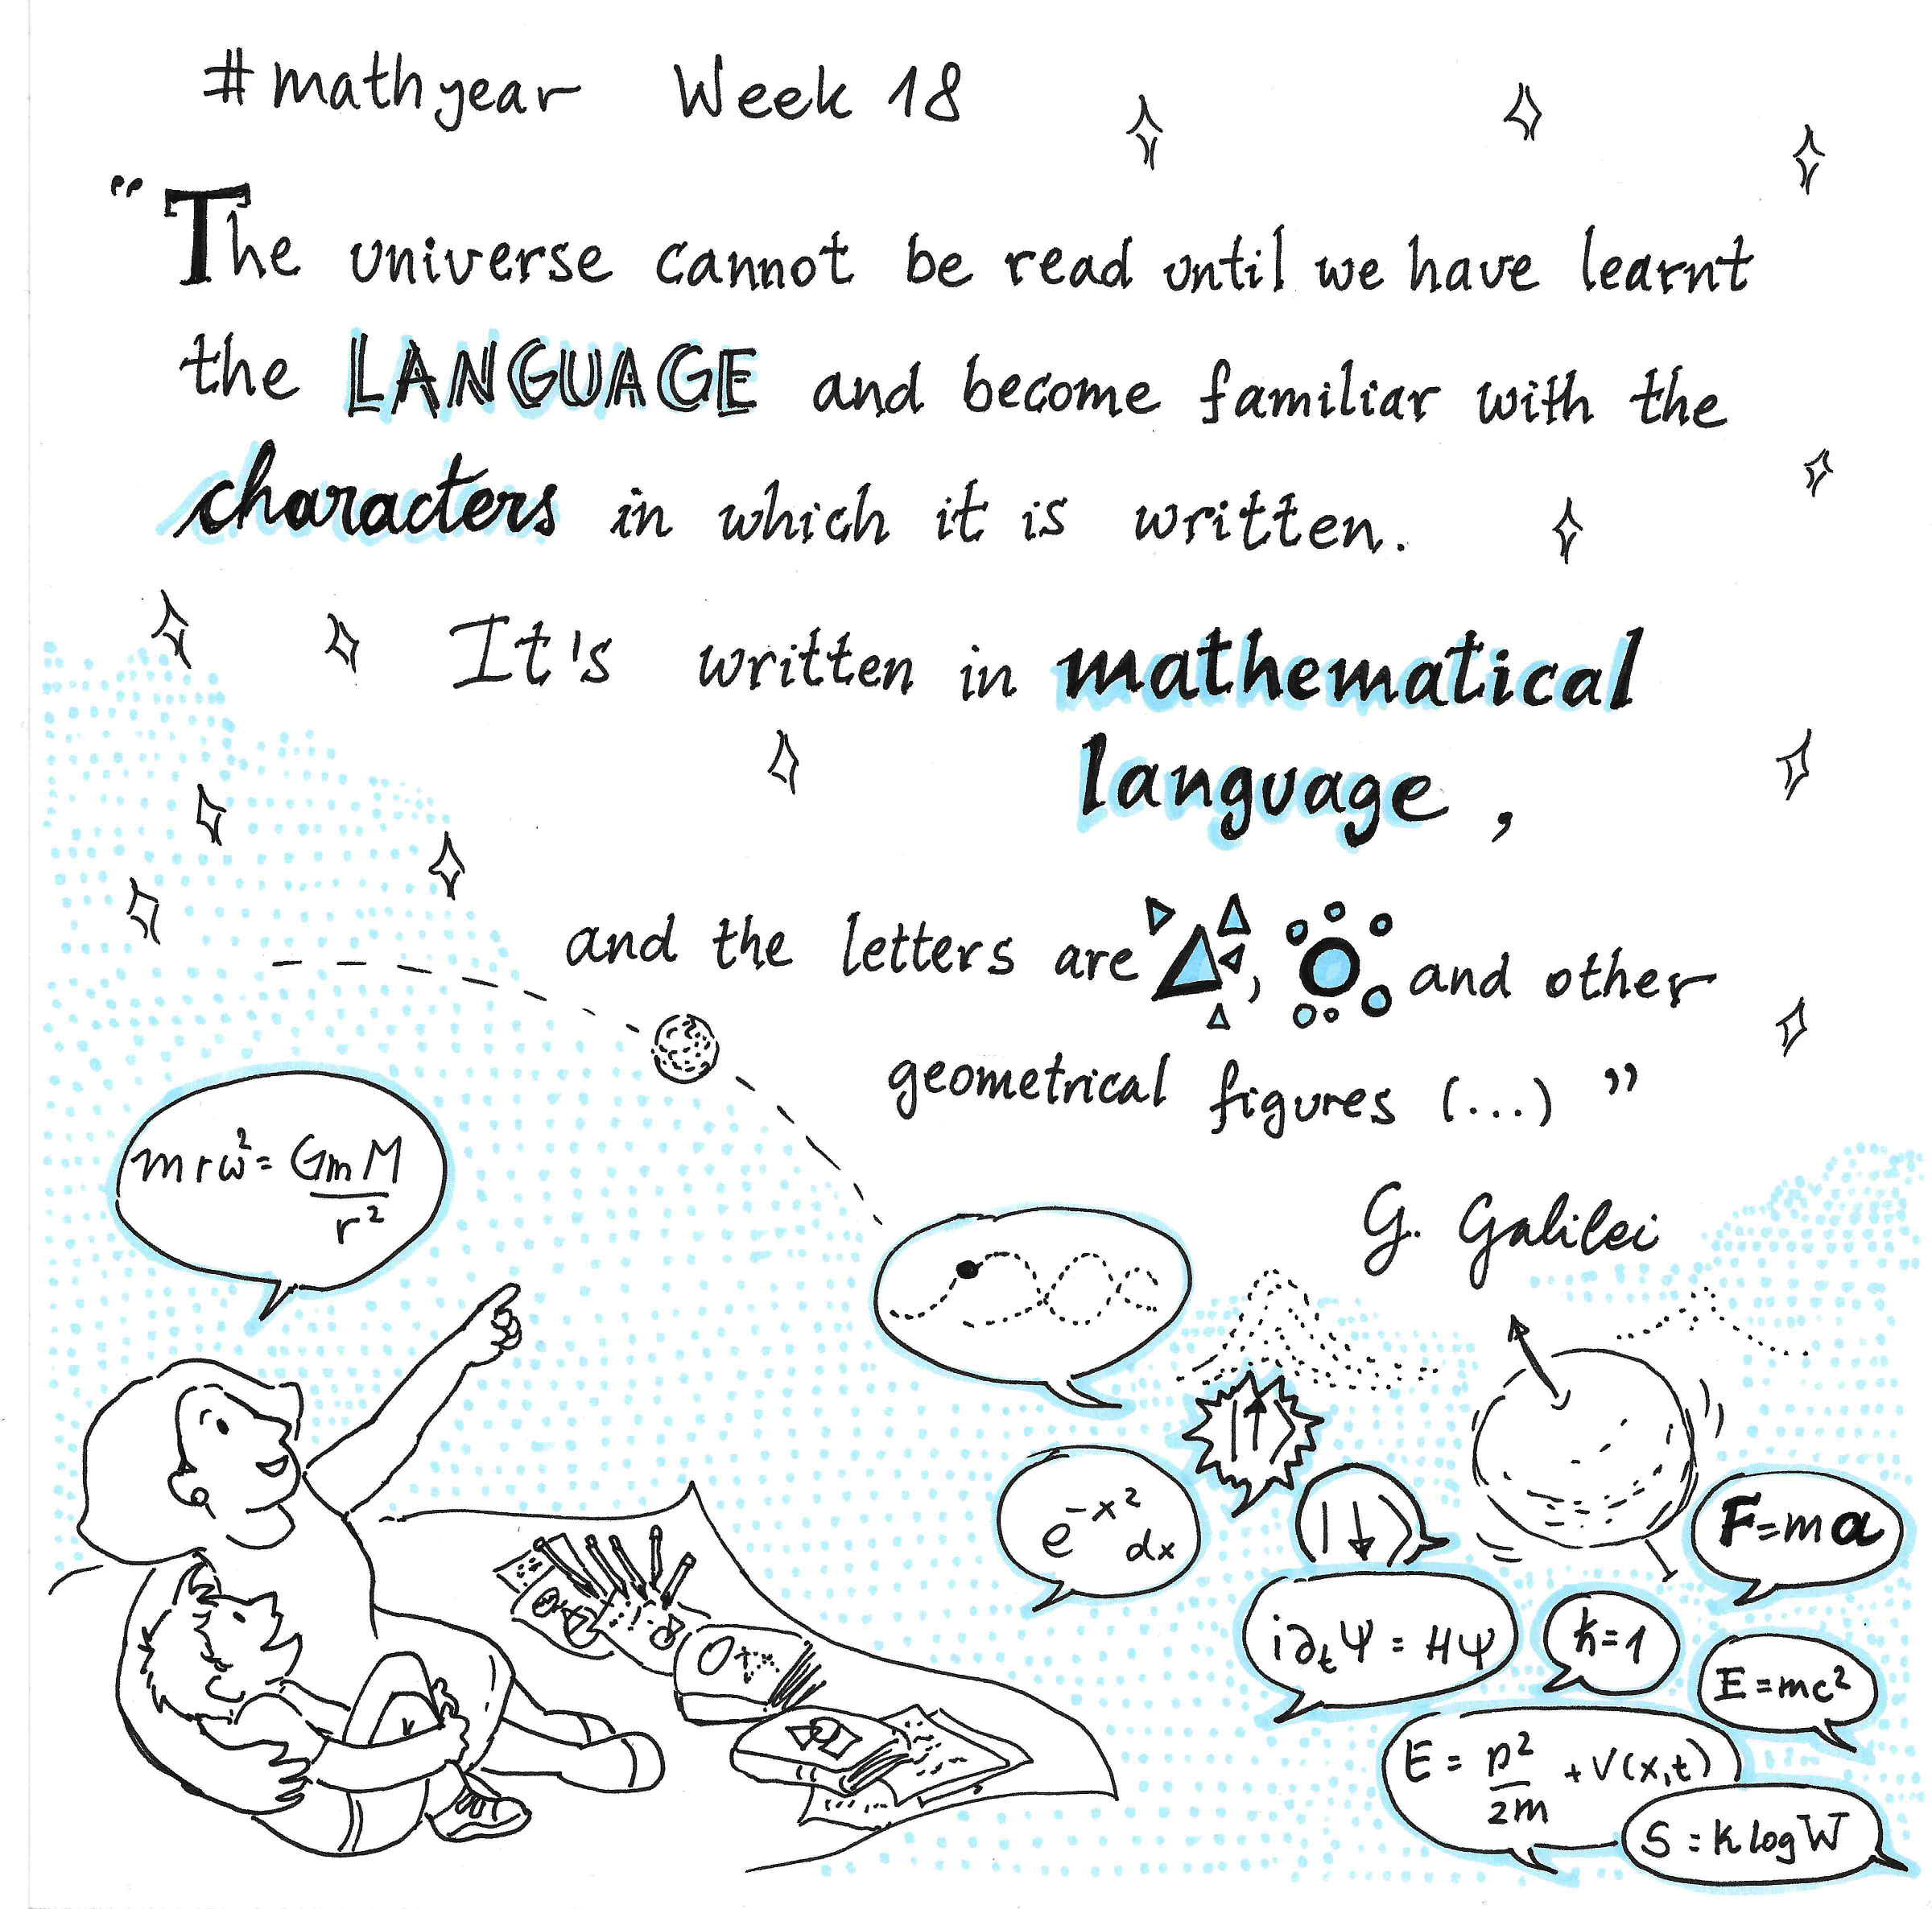 #mathyear Week 18
"The universe cannot be read until we have learnt
the LANGUAGE and become familiar with the
characters in which it is written.
It's written in mathematical
language,
and the letters are , and other
geometrical figures (...)"
G. Galilei
mrω² = GmM / r²
|↑⟩
e^-x² dx
|↓⟩
F=ma
i∂ₜΨ = HΨ
ħ=1
E=mc²
E = p²/2m + V(x,t)
S = k log W